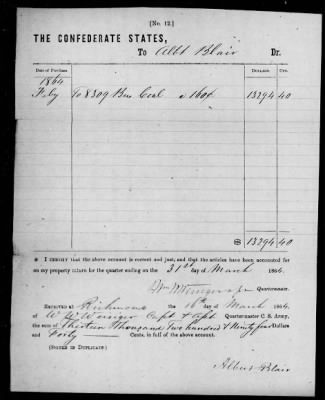 [No. 12.]
THE CONFEDERATE STATES,
To Albt Blair Dr.
Date of Purchase Dollars. Cts.
1864
Feby To 8309 Bus Coal @ 160¢ 13294 40
13294 40
I CERTIFY that the above account is correct and just, and that the articles have been accounted for
on my property return for the quarter ending on the 31st day of March 1864.
Quartermaster.
RECEIVED AT Richmond the 16th day of March 1864,
of W W Capt & Quartermaster C. S. Army,
the sum of Thirteen Thousand Two hundred & Ninety four Dollars
and Forty Cents, in full of the above account.
(SIGNED IN DUPLICATE.)
Albert Blair